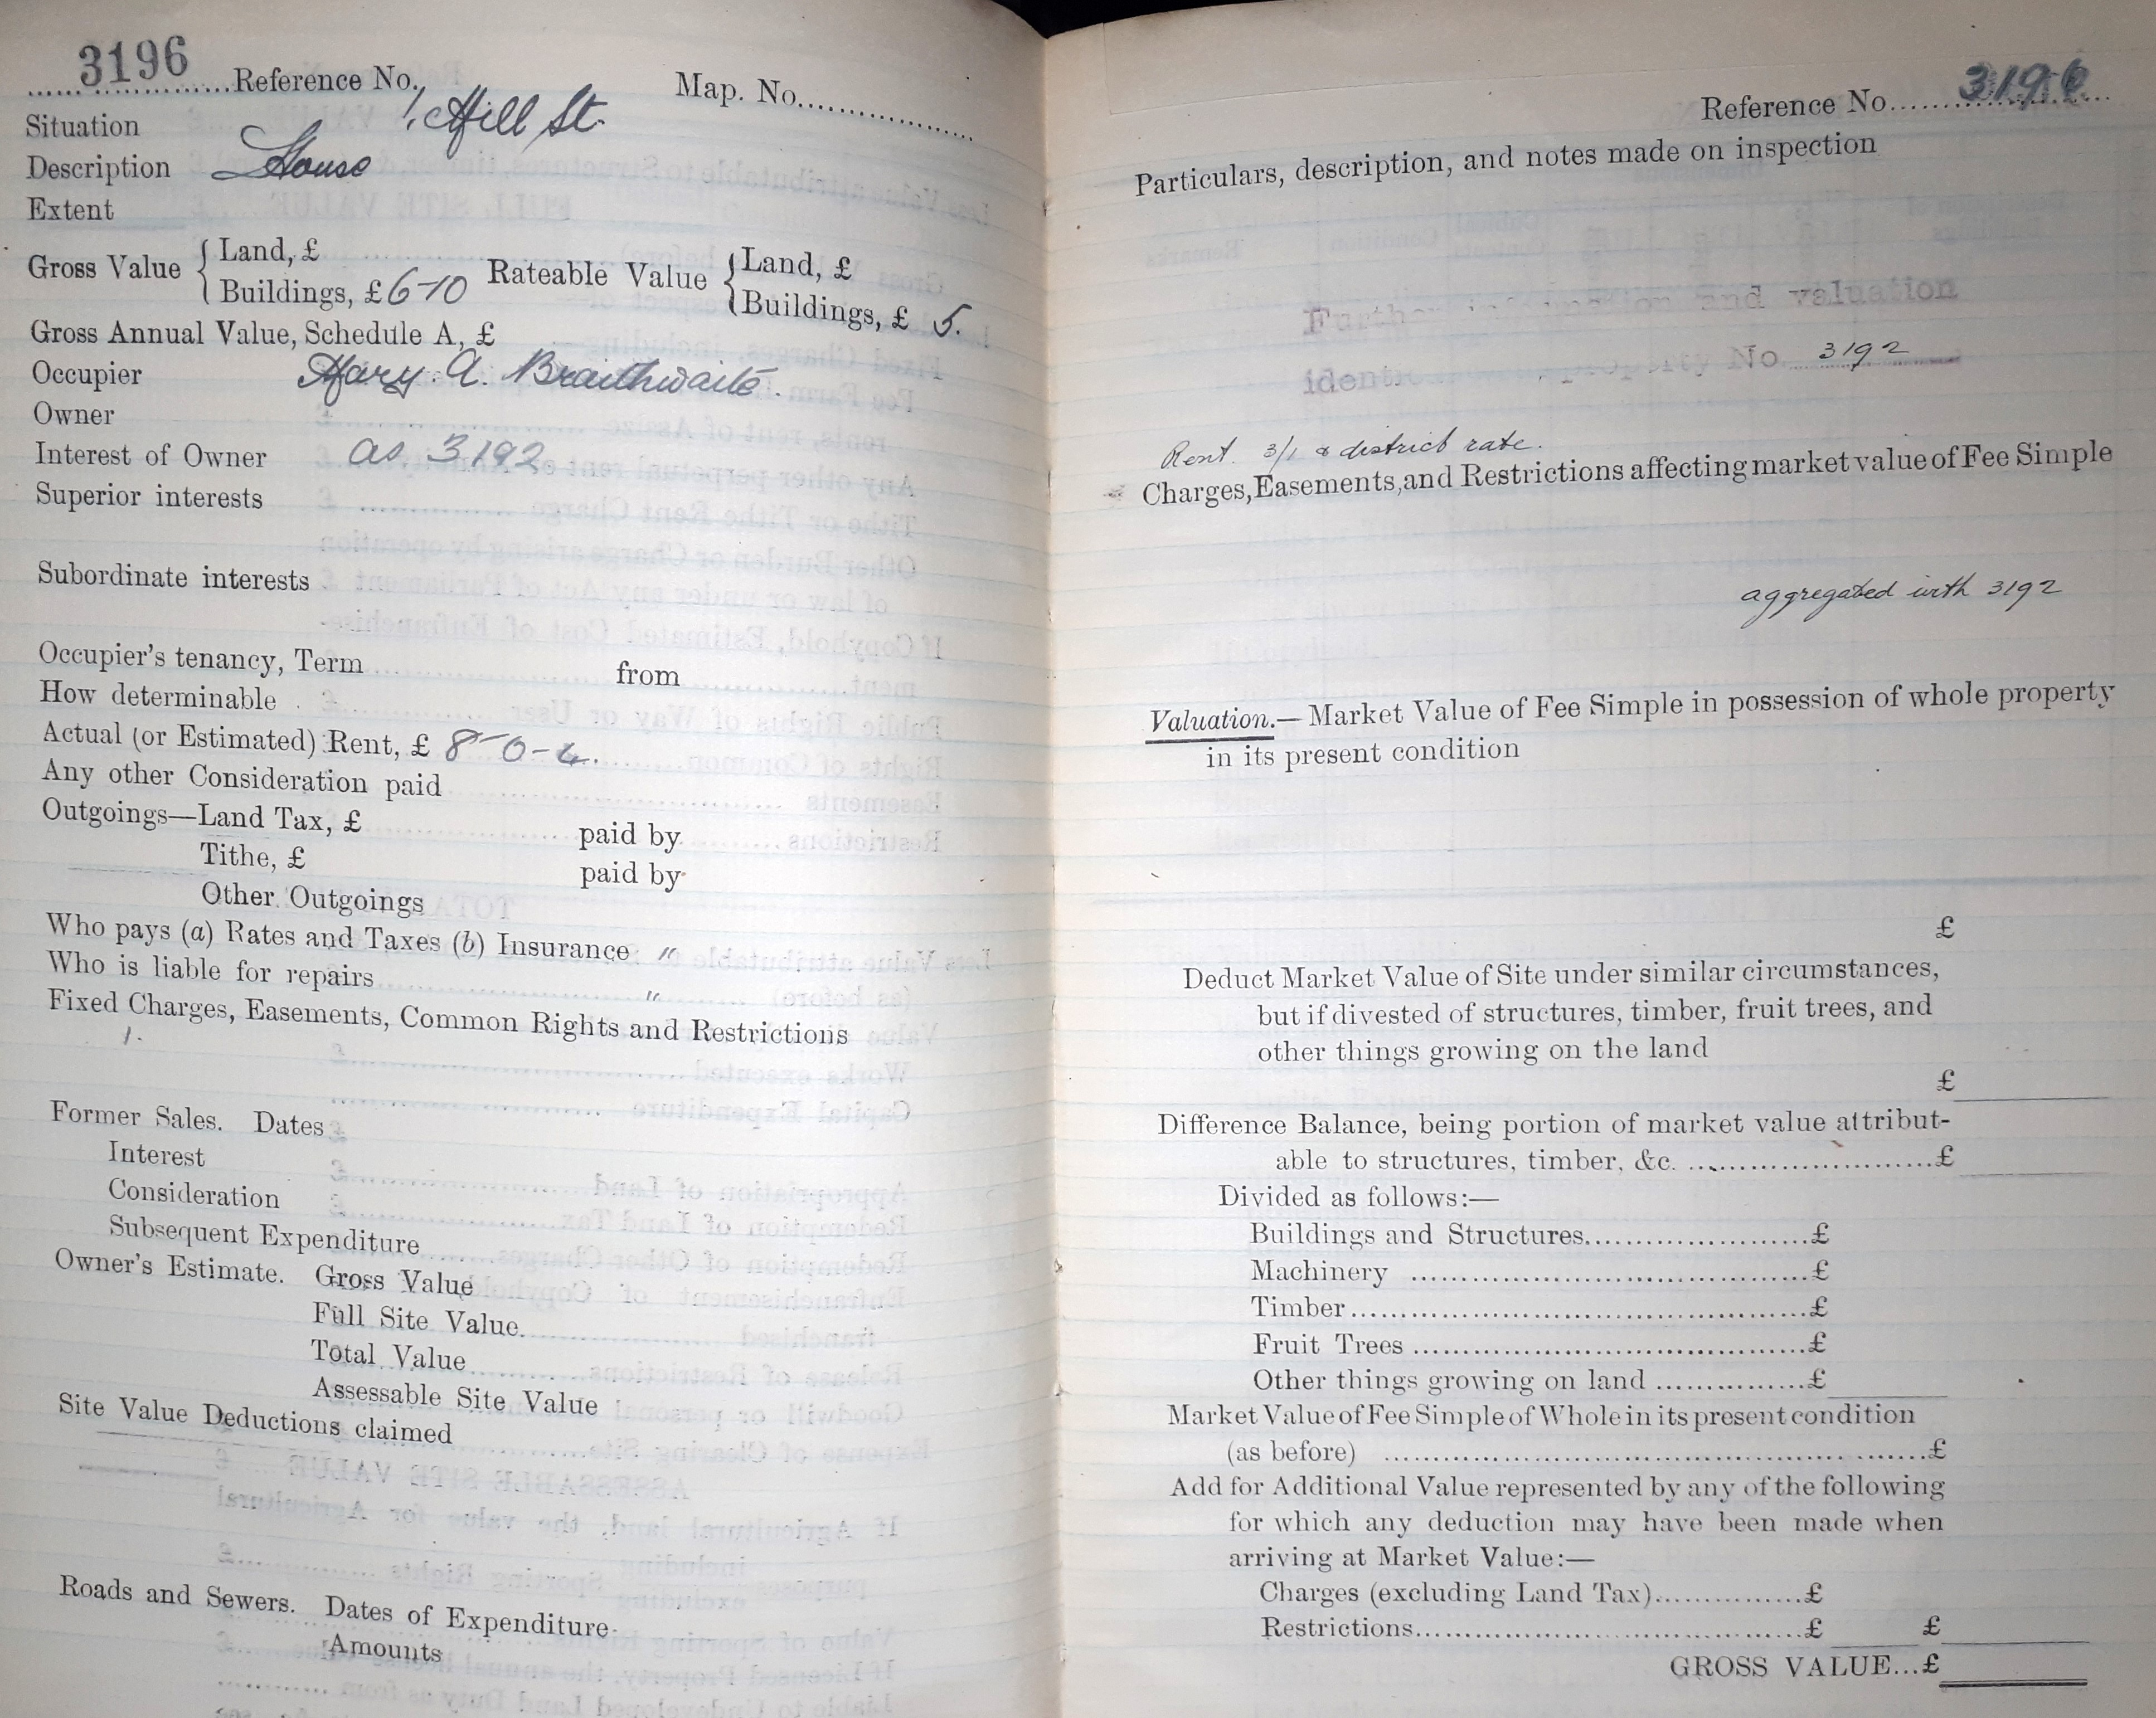 3196 Reference No. Map. No.
Situation 1, Hill St.
Description House
Extent
Gross Value { Land, £
Buildings, £ 6-10 Rateable Value { Land, £
Buildings, £ 5.
Gross Annual Value, Schedule A, £
Occupier Mary. A. Braithwaite.
Owner
Interest of Owner as 3192
Superior interests
Subordinate interests
Occupier's tenancy, Term from
How determinable
Actual (or Estimated) Rent, £ 8-0-4.
Any other Consideration paid
Outgoings—Land Tax, £ paid by
Tithe, £ paid by
Other Outgoings
Who pays (a) Rates and Taxes (b) Insurance "
Who is liable for repairs "
Fixed Charges, Easements, Common Rights and Restrictions
1.
Former Sales. Dates
Interest
Consideration
Subsequent Expenditure
Owner's Estimate. Gross Value
Full Site Value
Total Value
Assessable Site Value
Site Value Deductions claimed
Roads and Sewers. Dates of Expenditure
Amounts
Reference No. 3196
Particulars, description, and notes made on inspection
Further information and valuation
property No. 3192
Rent 3/1 & district rate.
Charges, Easements, and Restrictions affecting market value of Fee Simple
aggregated with 3192
Valuation.—Market Value of Fee Simple in possession of whole property
in its present condition
£
Deduct Market Value of Site under similar circumstances,
but if divested of structures, timber, fruit trees, and
other things growing on the land
£
Difference Balance, being portion of market value attribut-
able to structures, timber, &c. £
Divided as follows:—
Buildings and Structures £
Machinery £
Timber £
Fruit Trees £
Other things growing on land £
Market Value of Fee Simple of Whole in its present condition
(as before) £
Add for Additional Value represented by any of the following
for which any deduction may have been made when
arriving at Market Value:—
Charges (excluding Land Tax) £
Restrictions £ £
GROSS VALUE... £